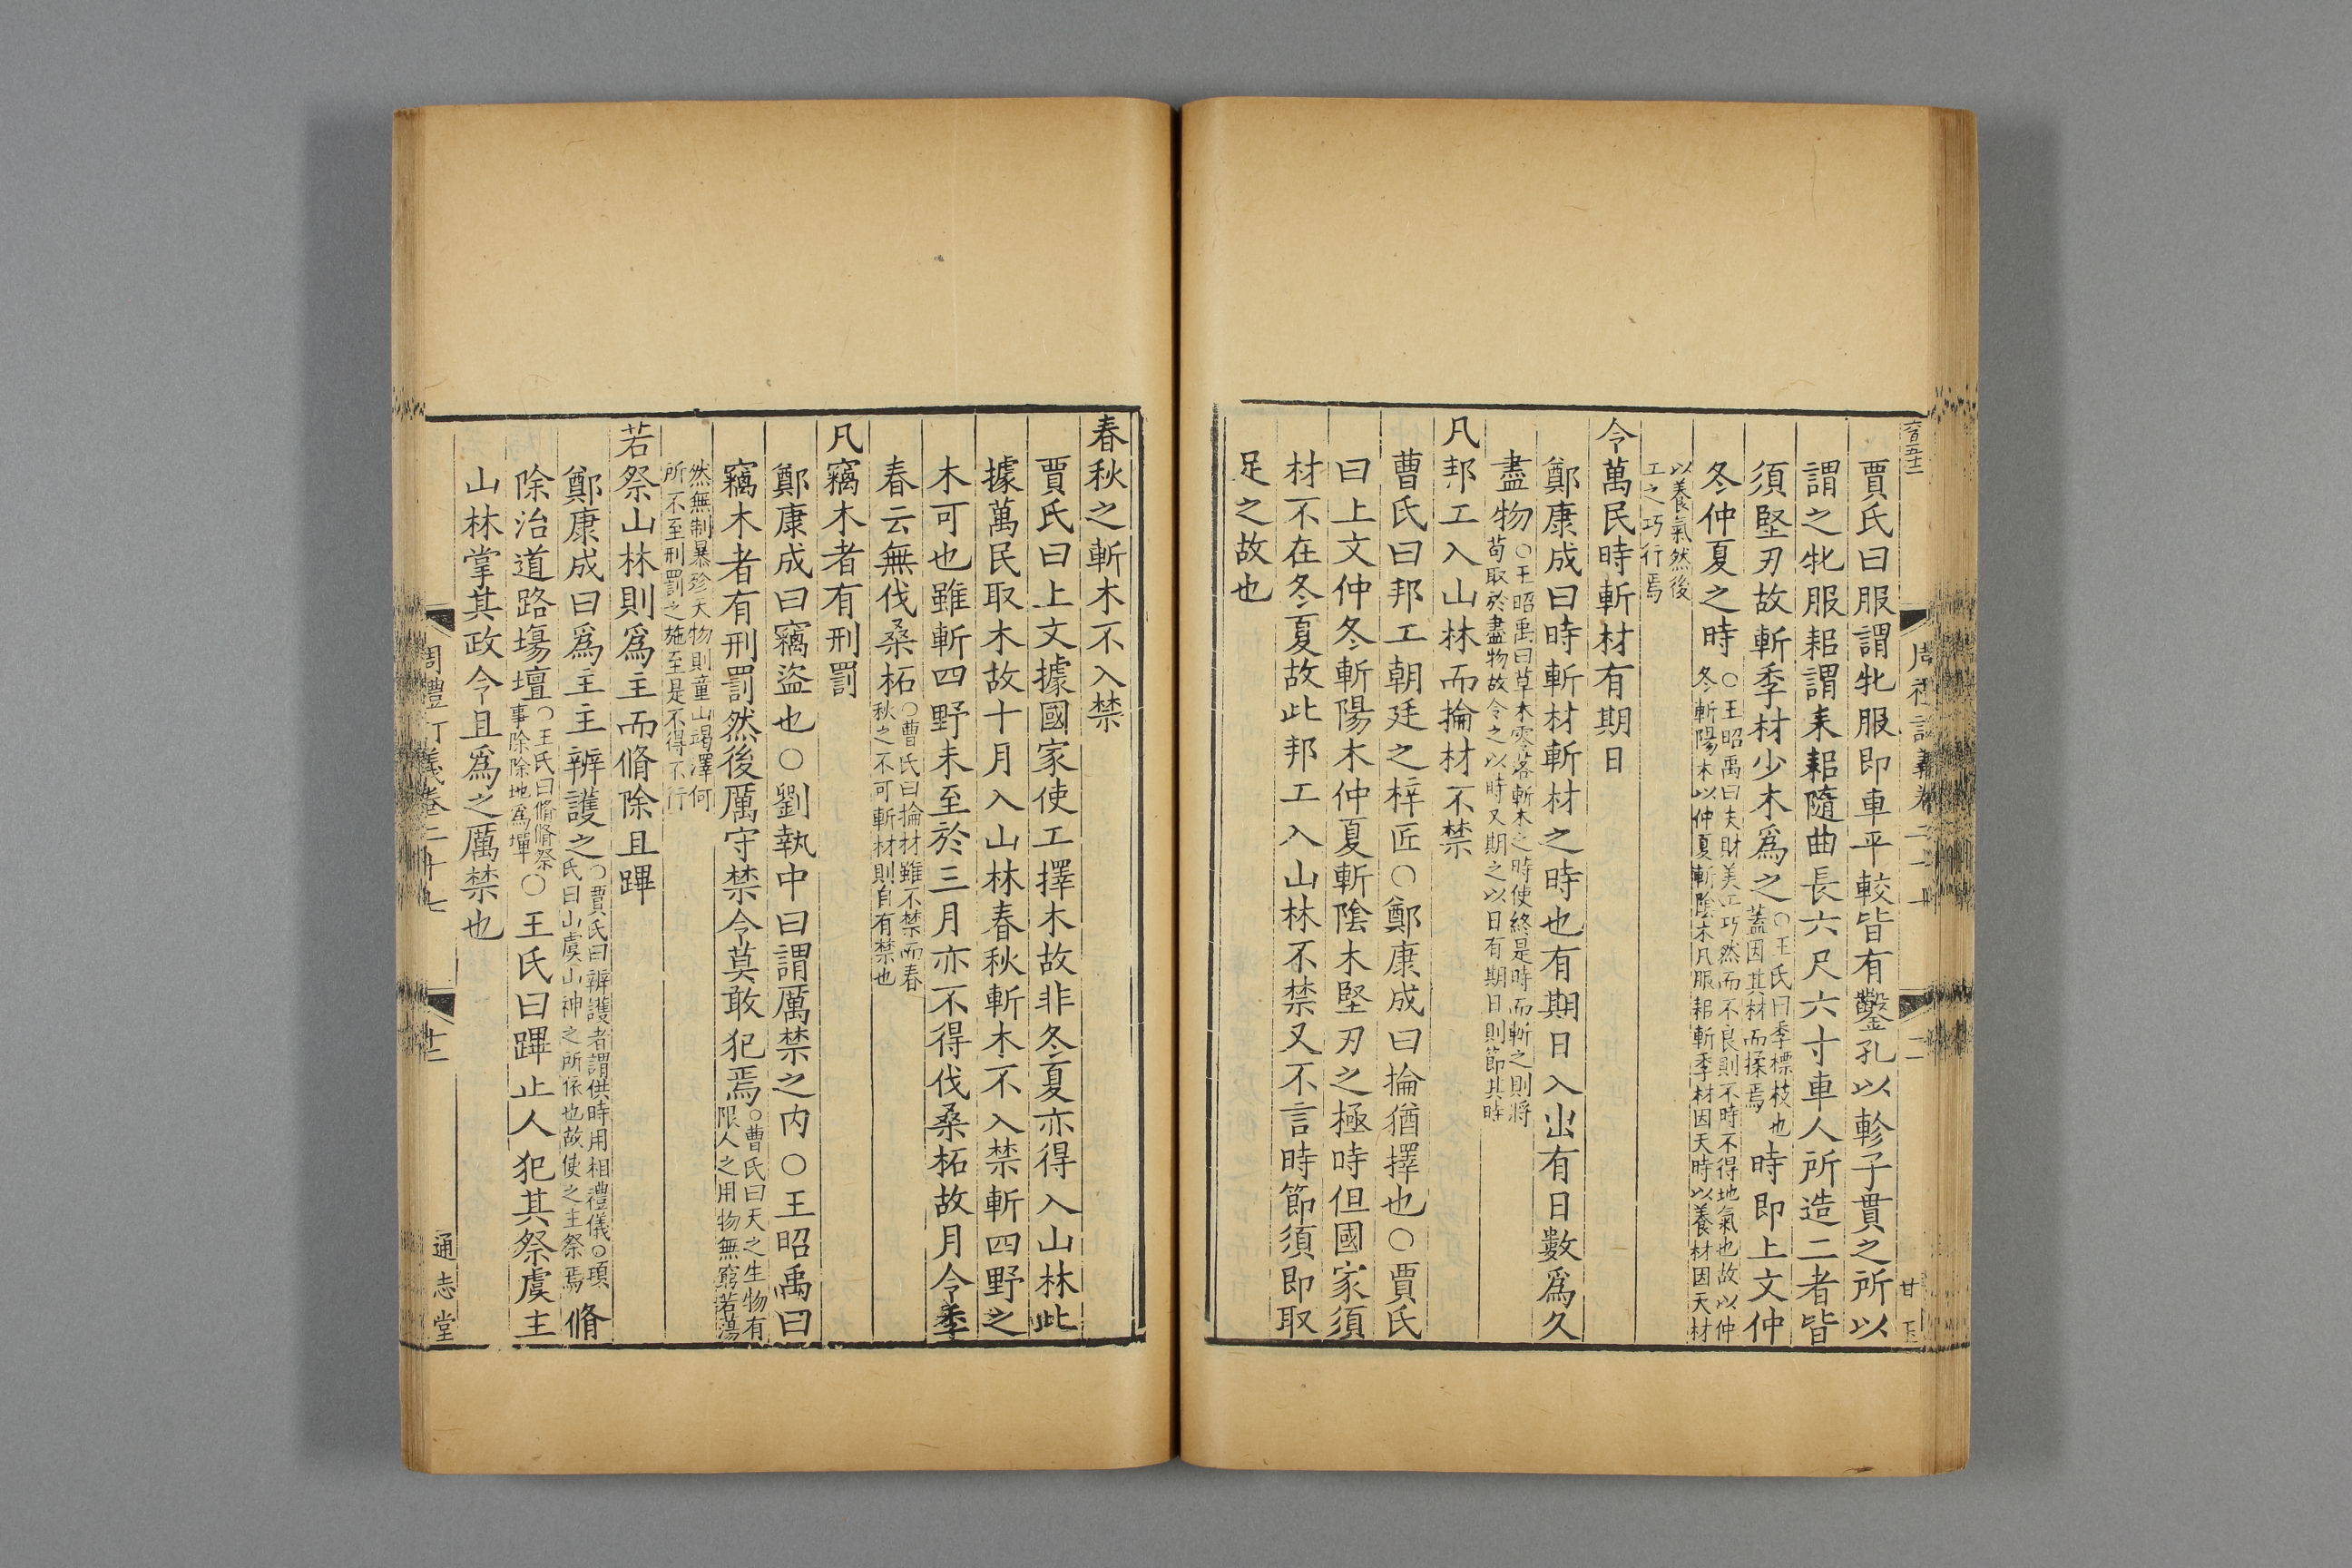 賈氏曰服謂牝服即車平較皆有鑿孔以軫子貫之所以
謂之牝服耜謂耒耜隨曲長六尺六寸車人所造二者皆
須堅刃故斬季材少木爲之○王氏曰季標枝也蓋因其材而揉焉時即上文仲
冬仲夏之時○王昭禹曰夫財美工巧然而不良則不時不得地氣也故以仲冬斬陽木以仲夏斬陰木凡服耜斬季材因天時以養材因天材
以養氣然後工之巧行焉
令萬民時斬材有期日
鄭康成曰時斬材斬材之時也有期日入出有日數爲久
盡物○王昭禹曰草木零落斬木之時使終是時而斬之則將苟取於盡物故令之以時又期之以日有期日則節其時
凡邦工入山林而掄材不禁
曹氏曰邦工朝廷之梓匠○鄭康成曰掄猶擇也○賈氏
曰上文仲冬斬陽木仲夏斬陰木堅刃之極時但國家須
材不在冬夏故此邦工入山林不禁又不言時節須即取
足之故也
春秋之斬木不入禁
賈氏曰上文據國家使工擇木故非冬夏亦得入山林此
據萬民取木故十月入山林春秋斬木不入禁斬四野之
木可也雖斬四野未至於三月亦不得伐桑柘故月令季
春云無伐桑柘○曹氏曰掄材雖不禁而春秋之不可斬材則自有禁也
凡竊木者有刑罰
鄭康成曰竊盜也○劉執中曰謂厲禁之内○王昭禹曰
竊木者有刑罰然後厲守禁令莫敢犯焉○曹氏曰天之生物有限人之用物無窮若蕩
然無制暴殄天物則童山竭澤何所不至刑罰之施至是不得不行
若祭山林則爲主而脩除且蹕
鄭康成曰爲主主辨護之○賈氏曰辨護者謂供時用相禮儀○項氏曰山虞山神之所依也故使之主祭焉脩
除治道路塲壇○王氏曰脩脩祭事除除地為墠○王氏曰蹕止人犯其祭虞主
山林掌其政令且爲之厲禁也
周禮訂義卷二十七
十二
通志堂